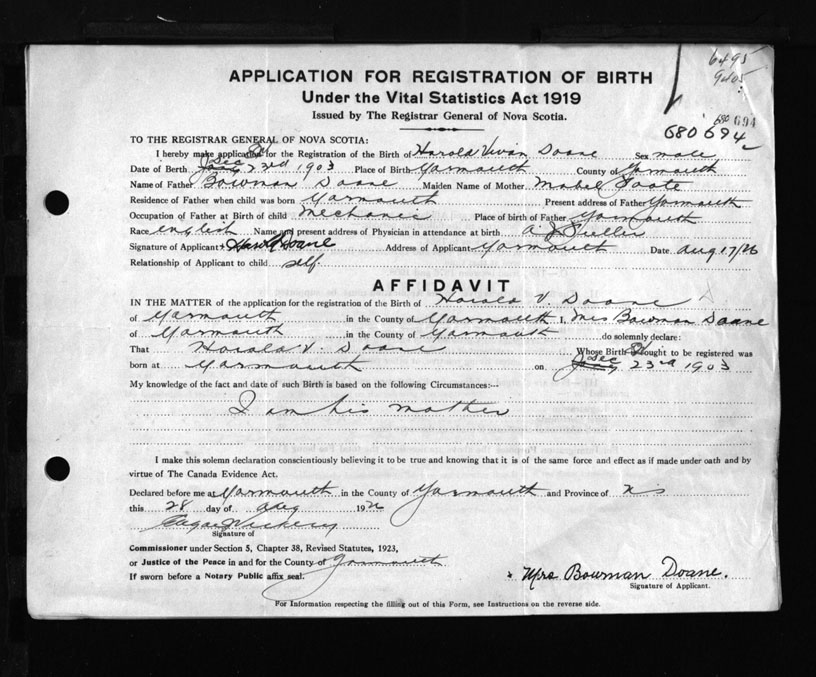 6495
9405
APPLICATION FOR REGISTRATION OF BIRTH
Under the Vital Statistics Act 1919
Issued by The Registrar General of Nova Scotia.
680 694
680694
TO THE REGISTRAR GENERAL OF NOVA SCOTIA:
I hereby make application for the Registration of the Birth of Harold Vivan Doane Sex male
Dec
Date of Birth 23rd 1903 Place of Birth Yarmouth County of Yarmouth
Name of Father Bowman Doane Maiden Name of Mother Mabel Foote
Residence of Father when child was born Yarmouth Present address of Father Yarmouth
Occupation of Father at Birth of child mechanic Place of birth of Father Yarmouth
Race english Name and present address of Physician in attendance at birth A. J. Fuller
Signature of Applicant Harold Doane Address of Applicant Yarmouth Date Aug 17/26
Relationship of Applicant to child self.
AFFIDAVIT
IN THE MATTER of the application for the registration of the Birth of Harold V. Doane
of Yarmouth in the County of Yarmouth I, Mrs Bowman Doane
of Yarmouth in the County of Yarmouth do solemnly declare:
That Harold V. Doane Whose Birth sought to be registered was
Dec
born at Yarmouth on 23rd 1903
My knowledge of the fact and date of such Birth is based on the following Circumstances:—
I am his mother
I make this solemn declaration conscientiously believing it to be true and knowing that it is of the same force and effect as if made under oath and by
virtue of The Canada Evidence Act.
Declared before me at Yarmouth in the County of Yarmouth and Province of N S
this 28 day of Aug 192
Signature of
Commissioner under Section 5, Chapter 38, Revised Statutes, 1923,
or Justice of the Peace in and for the County of Yarmouth
If sworn before a Notary Public affix seal.
x Mrs. Bowman Doane.
Signature of Applicant.
For Information respecting the filling out of this Form, see Instructions on the reverse side.